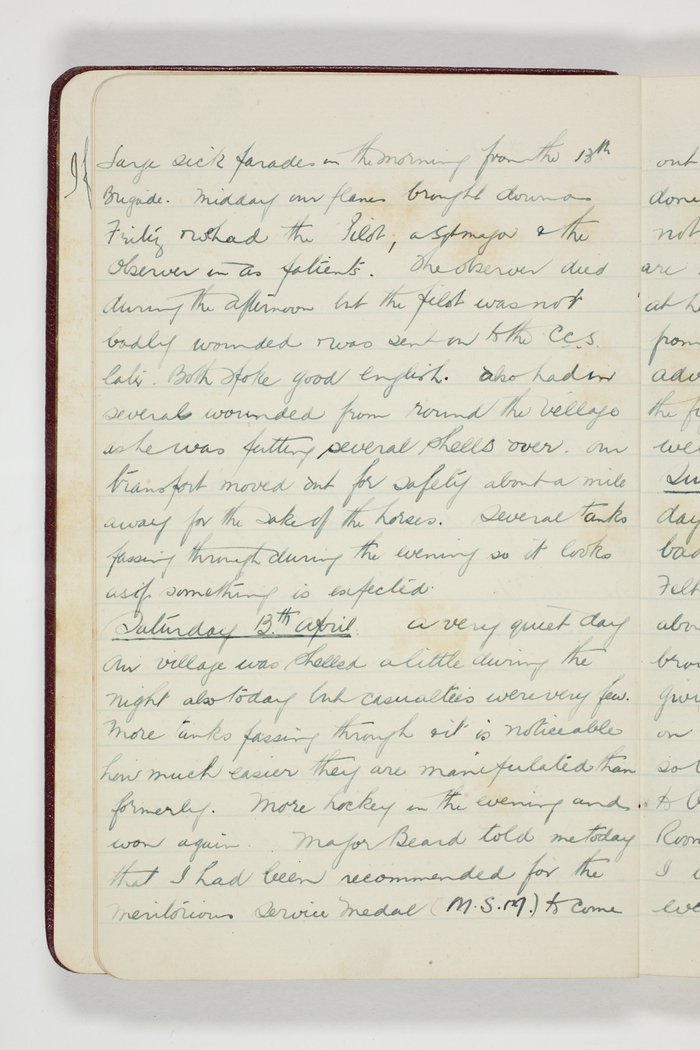 Large sick parades in the morning from the 13th
Brigade. Midday our planes brought down a
Fritz & we had the Pilot, a Sgt major & the
Observer in as patients. The observer died
during the afternoon but the pilot was not
badly wounded & was sent on to the C.C.S.
later. Both spoke good english. also had in
several wounded from round the village
as he was putting several shells over. Our
transport moved out for safety about a mile
away for the sake of the horses. Several tanks
passing through during the evening so it looks
as if something is expected.
Saturday 13th April a very quiet day
Our village was shelled a little during the
night also today but casualties were very few.
More tanks passing through & it is noticeable
how much easier they are manipulated than
formerly. More hockey in the evening and
won again. Major Beard told me today
that I had been recommended for the
meritorious Service Medal (M.S.M.) to come
out
not
are
at
the
day
on
I